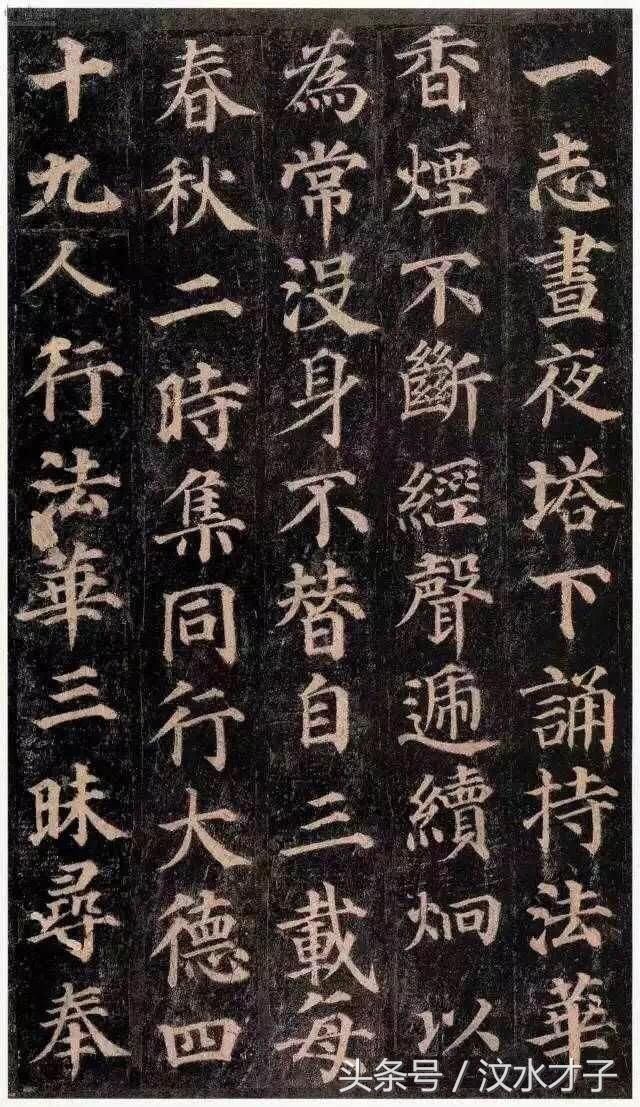 一志晝夜塔下誦持法華
香煙不斷經聲遞續炯以
為常没身不替自三載每
春秋二時集同行大德四
十九人行法華三昧尋奉
头条号 / 汶水才子